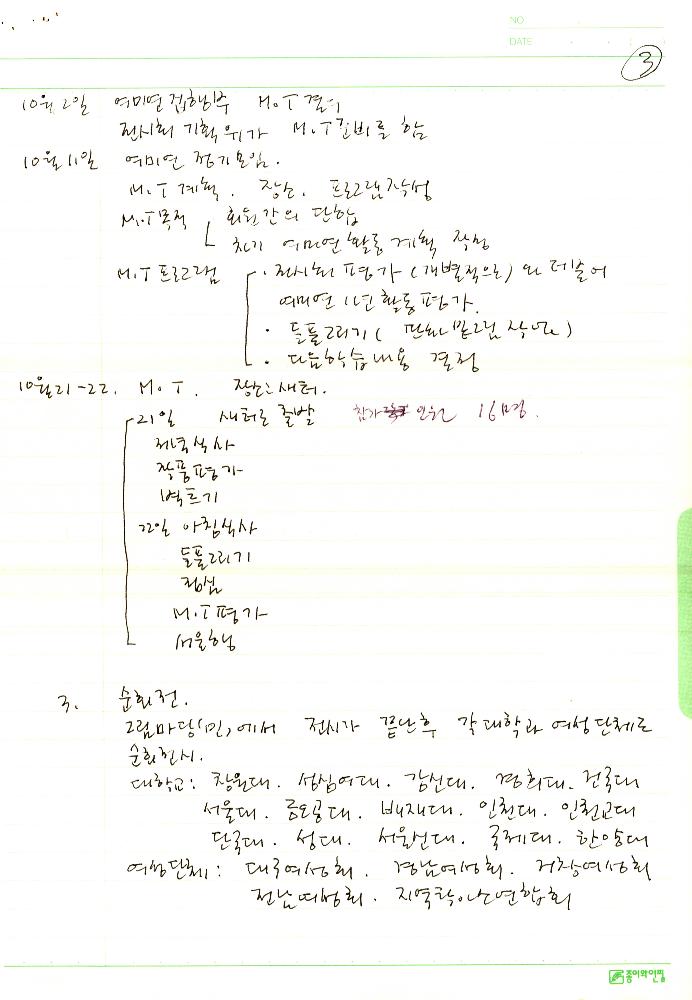 NO
DATE
③
10월 2일 여미연 집행부 M.T 결의
전시회 기획위가 M.T 준비를 함
10월 11일 여미연 정기모임.
M.T 계획. 장소. 프로그램작성
M.T목적 회원간의 단합
차기 여미연 활동계획 작성
M.T 프로그램 · 전시회 평가 (개별적으로) 와 더불어
여미연 1년 활동평가.
· 돌플그리기 ( 만화 밑그림 작업 )
· 다음학습내용 결정
10월 21-22. M.T. 장소:새터.
21일 새터로 출발 참가 인원 16명.
저녁식사
작품평가
벽트기
22일 아침식사
돌플그리기
점심
M.T평가
서울행
3. 순회전.
그림마당(민)에서 전시가 끝난후 각 대학과 여성단체로
순회전시.
대학교: 창원대. 성심여대. 감신대. 경희대. 건국대
서울대. 배재대. 인천대. 인천교대
단국대. 성대. 서울산대. 국제대. 한양대
여성단체: 대구여성회. 경남여성회. 거창여성회
전남여성회. 지역탁아소연합회
종이와연필